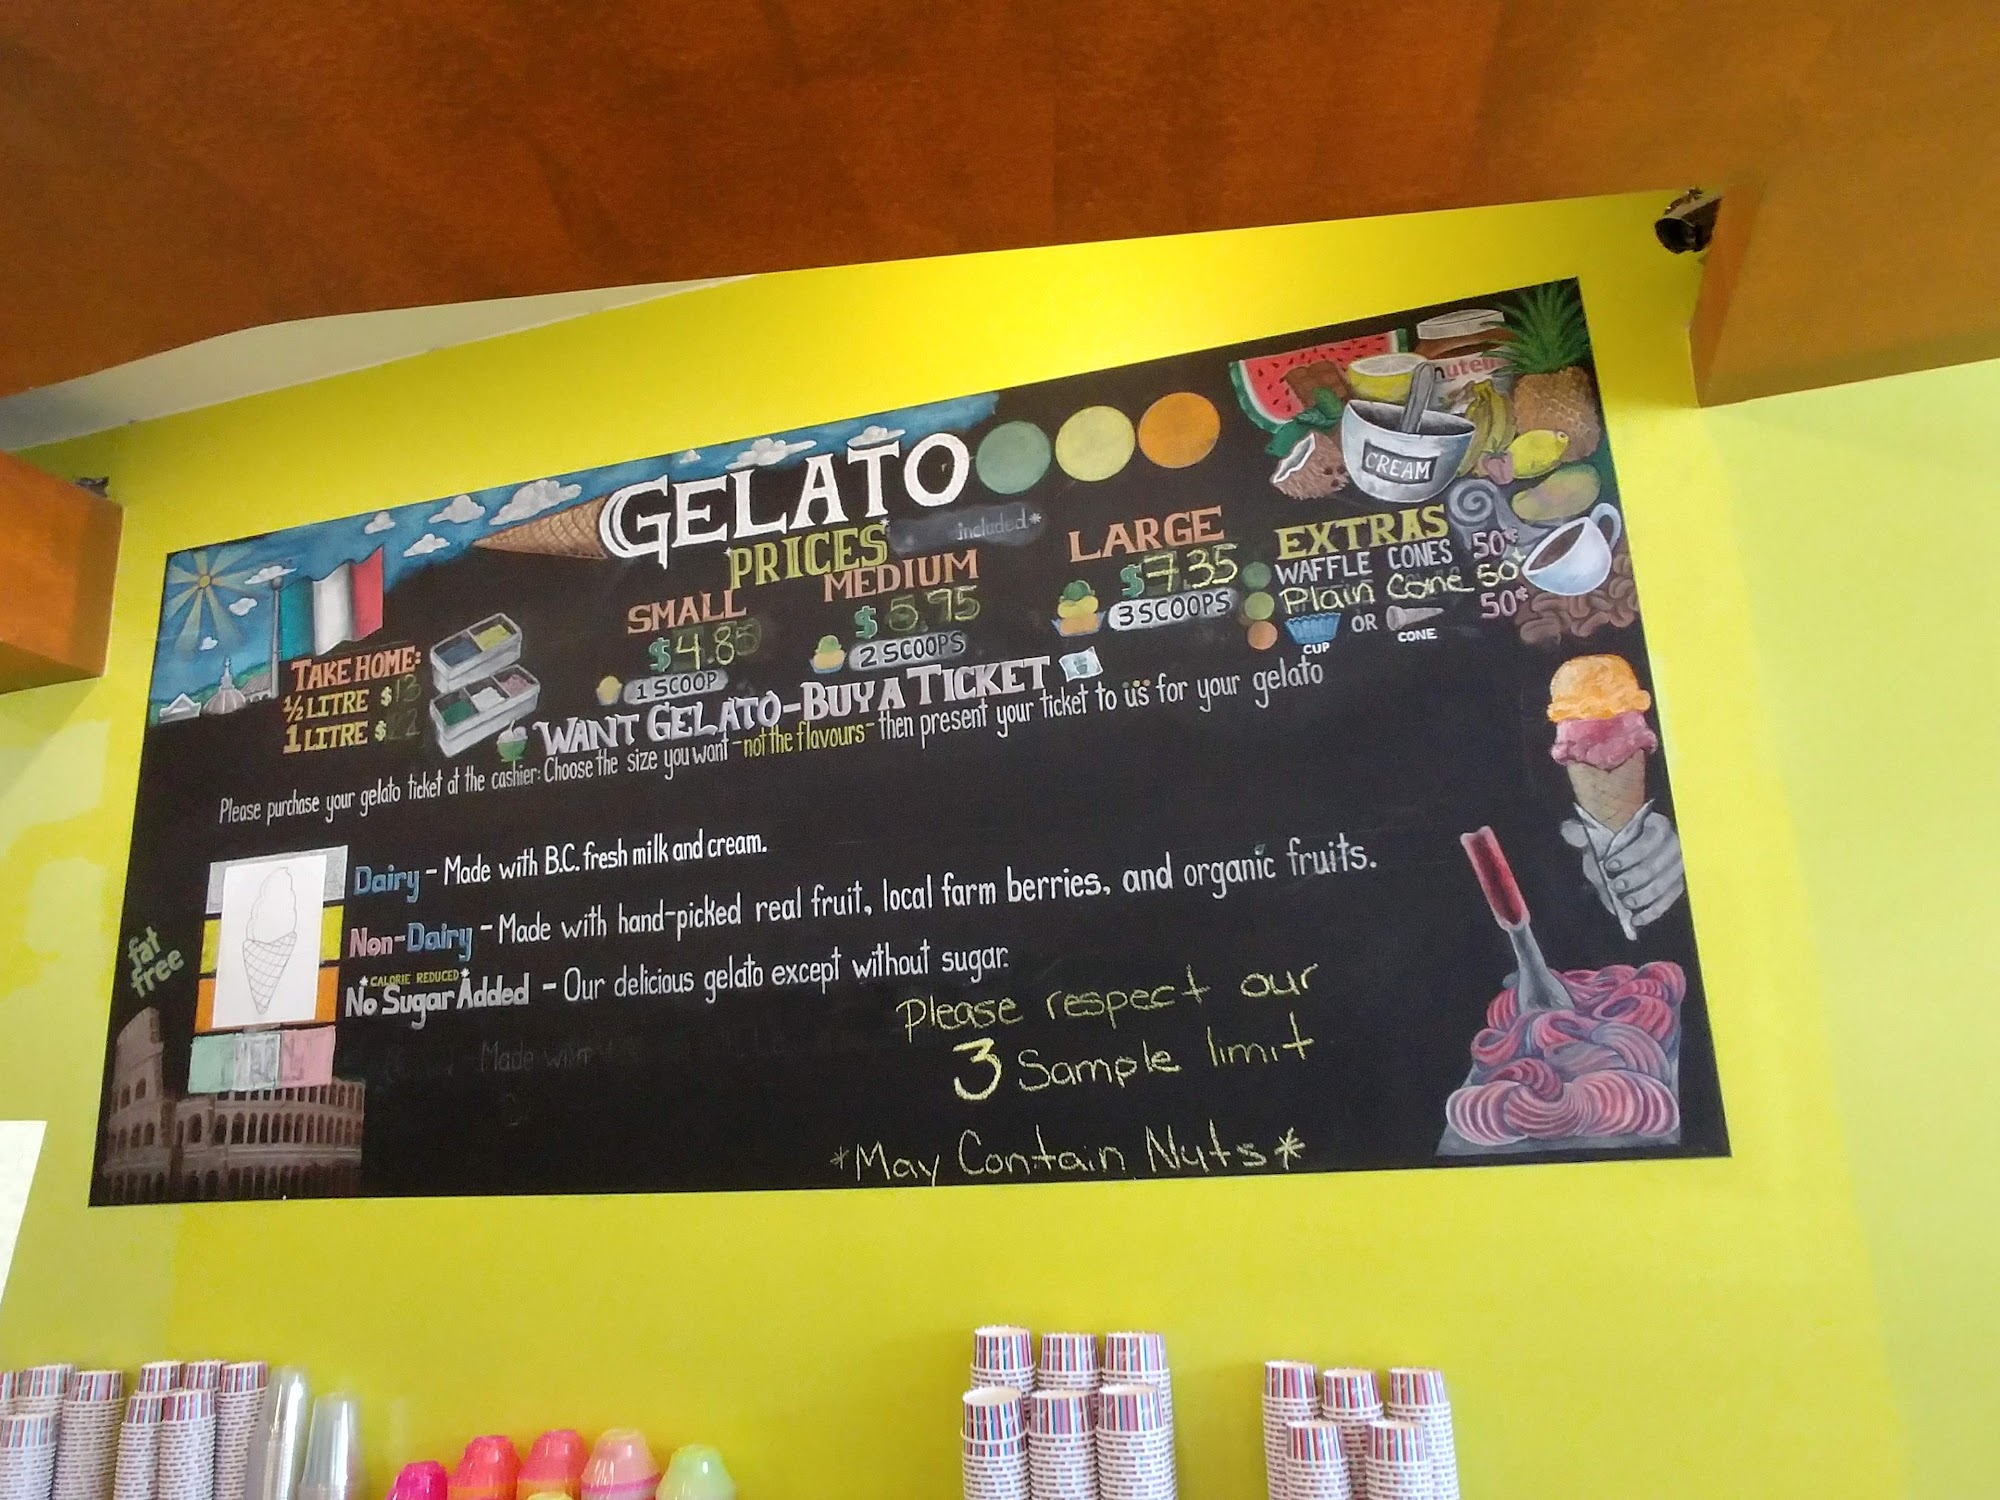 GELATO
PRICES
included*
nutell
CREAM
SMALL
$4.85
1 SCOOP
MEDIUM
$5.75
2 SCOOPS
LARGE
$7.35
3 SCOOPS
EXTRAS
WAFFLE CONES 50¢
Plain Cone 50¢
50¢
CUP OR CONE
TAKE HOME:
½ LITRE $13
1 LITRE $22
WANT GELATO-BUY A TICKET
Please purchase your gelato ticket at the cashier: Choose the size you want -not the flavours- then present your ticket to us for your gelato
Dairy - Made with B.C. fresh milk and cream.
Non-Dairy - Made with hand-picked real fruit, local farm berries, and organic fruits.
*CALORIE REDUCED*
No Sugar Added - Our delicious gelato except without sugar.
fat
free
Made with
Please respect our
3 Sample limit
*May Contain Nuts*